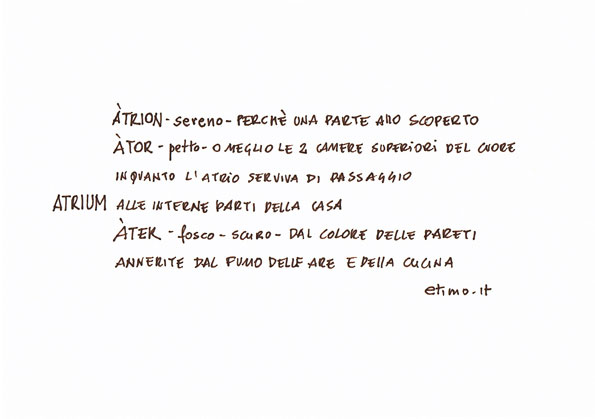 ÀTRION - sereno - PERCHÈ UNA PARTE Allo SCOPERTO
ÀTOR - petto - O MEGLIO LE 2 CAMERE SUPERIORI DEL CUORE
INQUANTO L'ATRIO SERVIVA DI PASSAGGIO
ATRIUM ALLE INTERNE PARTI DELLA CASA
ÀTER - fosco - scuro - DAL COLORE DELLE PARETI
ANNERITE DAL FUMO DELLE ARE E DELLA CUCINA
etimo.it